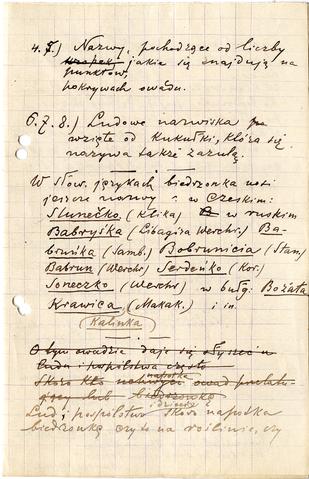 4.5.) Nazwy, pochodzące od liczby
jakie się znajdują na
punktów,
pokrywach owadu.
6.7.8.) Ludowe nazwiska
wzięte od Kukułki, która się
nazywa także zazulą.
W słow. językach biedronka nosi
jeszcze nazwy: w czeskim:
Slunečko (Klika) w ruskim
Babryśka (Łibagira Werchr.) Ba-
bruńka (Samb.) Bobrunicia (Stan)
Babrun (Werchr) Serdeńko (Kor.)
Soneczko (Werchr) w bułg. Bożata
Krawica, (Makak.) i in.
(Kalinka)
O tym owadzie daje się słyszeć u
ludu i pospólstwa często
Skoro kto napotka owad
lub biedronkę
i dzieci
Lud, pospólstwo skoro napotka
biedronkę czy to na roślinie, czy